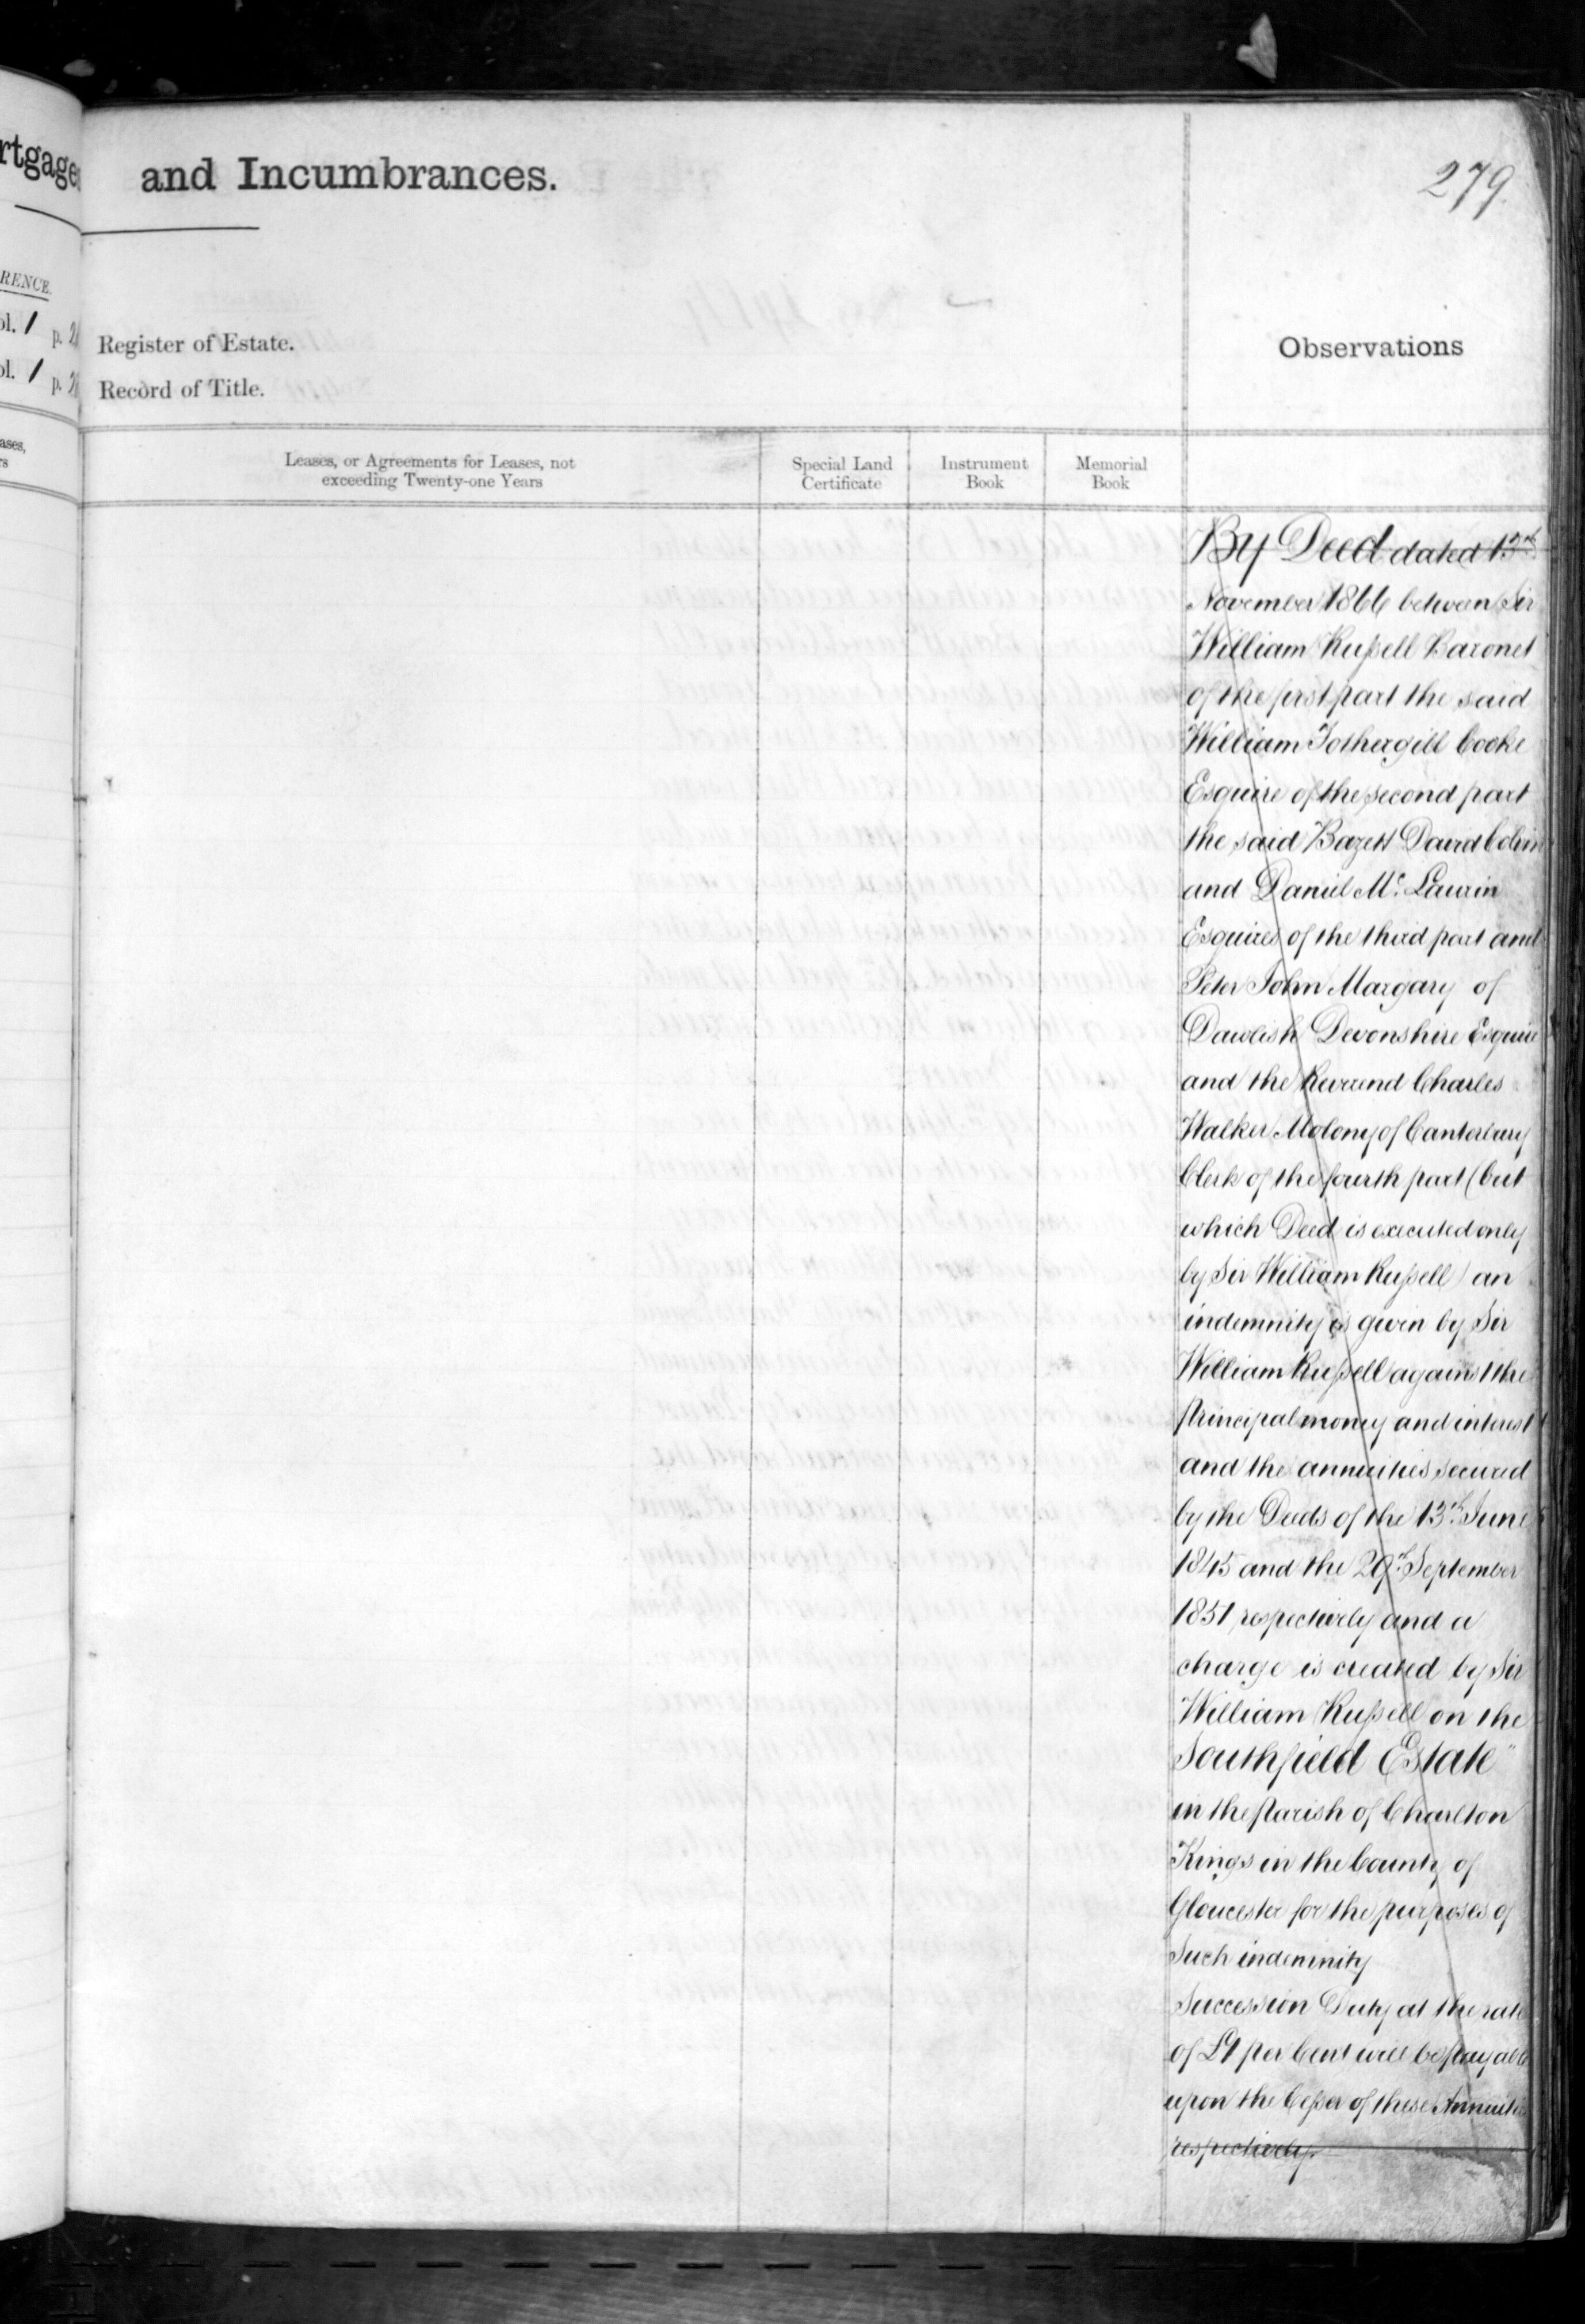 rtgages
and Incumbrances.
279.
RENCE.
ol. 1 p.
Register of Estate.
ol. 1 p.
Record of Title.
Observations
ases,
rs
Leases, or Agreements for Leases, not
exceeding Twenty-one Years
Special Land
Certificate
Instrument
Book
Memorial
Book
By Deed dated 13th
November 1866 between Sir
William Russell Baronet
of the first part the said
William Fothergill Cooke
Esquire of the second part
the said Bazett David Colvin
and Daniel Mc. Laurin
Esquires of the third part and
Peter John Margary of
Dawlish Devonshire Esquire
and the Reverend Charles
Walker Molony of Canterbury
Clerk of the fourth part (but
which Deed is executed only
by Sir William Russell) an
indemnity is given by Sir
William Russell against the
principal money and interest
and the annuities secured
by the Deeds of the 13th June
1845 and the 29th September
1851 respectively and a
charge is created by Sir
William Russell on the
Southfield Estate"
in the Parish of Charlton
Kings in the County of
Gloucester for the purposes of
such indemnity
Succession Duty at the rate
of £1 per Cent will be payable
upon the Cesser of these Annuities
respectively.